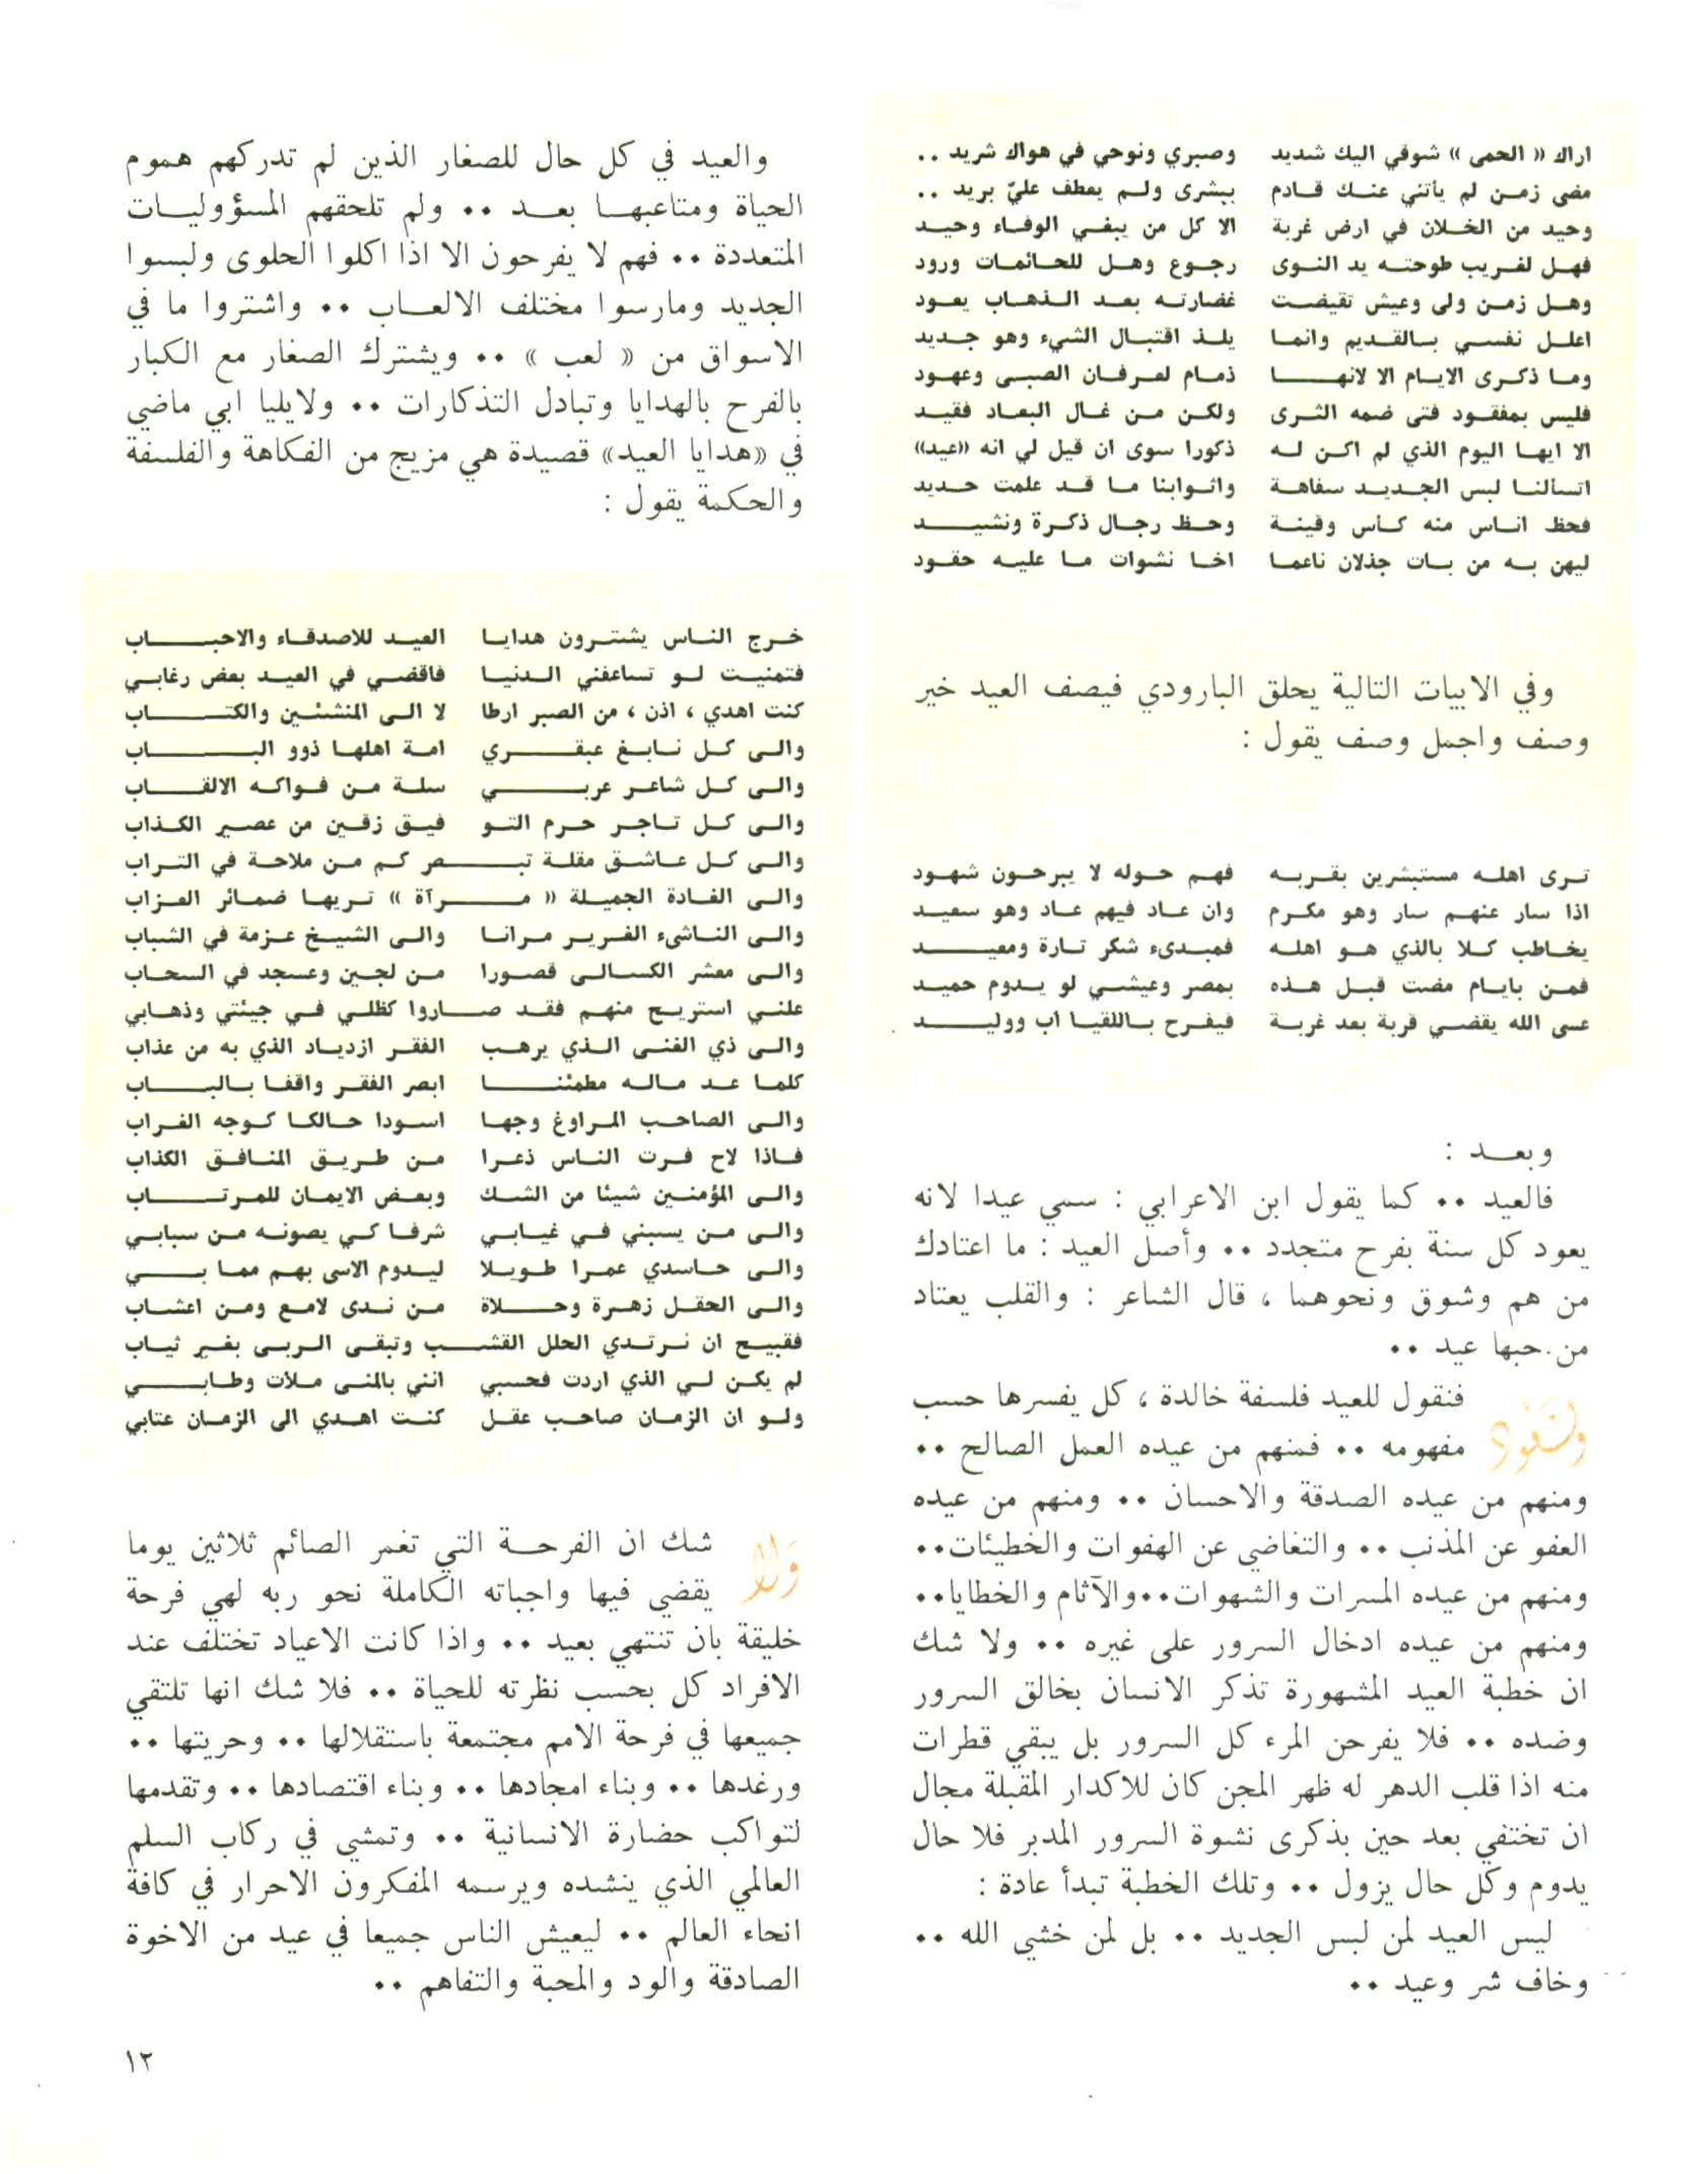 اراك « الحمى » شوقي اليك شديد وصبري ونوحي في هواك شريد ..
مضى زمن لم يأتني عنك قادم ببشرى ولم يعطف عليّ بريد ..
وحيد من الخلان في ارض غربة الا كل من يبغي الوفاء وحيد
فهل لغريب طوحته يد النوى رجوع وهل للحائمات ورود
وهل زمن ولى وعيش تقيضت غضارته بعد الذهاب يعود
اعلل نفسي بالقديم وانما يلذ اقتبال الشيء وهو جديد
وما ذكرى الايام الا لانها ذمام لعرفان الصبى وعهود
فليس بمفقود فتى ضمه الثرى ولكن من غال البعاد فقيد
الا ايها اليوم الذي لم اكن له ذكورا سوى ان قيل لي انه «عيد»
اتسألنا لبس الجديد سفاهة واثوابنا ما قد علمت حديد
فحظ اناس منه كأس وقينة وحظ رجال ذكرة ونشيد
ليهن به من بات جذلان ناعما اخا نشوات ما عليه حقود
وفي الابيات التالية يحلق البارودي فيصف العيد خير
وصف واجمل وصف يقول :
ترى اهله مستبشرين بقربه فهم حوله لا يبرحون شهود
اذا سار عنهم سار وهو مكرم وان عاد فيهم عاد وهو سعيد
يخاطب كلا بالذي هو اهله فمبدىء شكر تارة ومعيد
فمن بايام مضت قبل هذه بمصر وعيشي لو يدوم حميد
عسى الله يقضي قربة بعد غربة فيفرح باللقيا اب ووليد
وبعد :
فالعيد .. كما يقول ابن الاعرابي : سمي عيدا لانه
يعود كل سنة بفرح متجدد .. وأصل العيد : ما اعتادك
من هم وشوق ونحوهما ، قال الشاعر : والقلب يعتاد
من حبها عيد ..
ولنعود فنقول للعيد فلسفة خالدة ، كل يفسرها حسب
مفهومه .. فمنهم من عيده العمل الصالح ..
ومنهم من عيده الصدقة والاحسان .. ومنهم من عيده
العفو عن المذنب .. والتغاضي عن الهفوات والخطيئات..
ومنهم من عيده المسرات والشهوات..والآثام والخطايا..
ومنهم من عيده ادخال السرور على غيره .. ولا شك
ان خطبة العيد المشهورة تذكر الانسان بخالق السرور
وضده .. فلا يفرحن المرء كل السرور بل يبقي قطرات
منه اذا قلب الدهر له ظهر المجن كان للاكدار المقبلة مجال
ان تختفي بعد حين بذكرى نشوة السرور المدبر فلا حال
يدوم وكل حال يزول .. وتلك الخطبة تبدأ عادة :
ليس العيد لمن لبس الجديد .. بل لمن خشي الله ..
وخاف شر وعيد ..
والعيد في كل حال للصغار الذين لم تدركهم هموم
الحياة ومتاعبها بعد .. ولم تلحقهم المسؤوليات
المتعددة .. فهم لا يفرحون الا اذا اكلوا الحلوى ولبسوا
الجديد ومارسوا مختلف الالعاب .. واشتروا ما في
الاسواق من « لعب » .. ويشترك الصغار مع الكبار
بالفرح بالهدايا وتبادل التذكارات .. ولايليا ابي ماضي
في «هدايا العيد» قصيدة هي مزيج من الفكاهة والفلسفة
والحكمة يقول :
خرج الناس يشترون هدايا العيد للاصدقاء والاحباب
فتمنيت لو تساعفني الدنيا فاقضي في العيد بعض رغابي
كنت اهدي ، اذن ، من الصبر ارطا لا الى المنشئين والكتاب
والى كل نابغ عبقري امة اهلها ذوو الباب
والى كل شاعر عربي سلة من فواكه الالقاب
والى كل تاجر حرم التو فيق زقين من عصير الكذاب
والى كل عاشق مقلة تبصر كم من ملاحة في التراب
والى الغادة الجميلة « مرآة » تريها ضمائر العزاب
والى الناشىء الغرير مرانا والى الشيخ عزمة في الشباب
والى معشر الكسالى قصورا من لجين وعسجد في السحاب
علني استريح منهم فقد صاروا كظلي في جيئتي وذهابي
والى ذي الغنى الذي يرهب الفقر ازدياد الذي به من عذاب
كلما عد ماله مطمئنا ابصر الفقر واقفا بالباب
والى الصاحب المراوغ وجها اسودا حالكا كوجه الغراب
فاذا لاح فرت الناس ذعرا من طريق المنافق الكذاب
والى المؤمنين شيئا من الشك وبعض الايمان للمرتاب
والى من يسبني في غيابي شرفا كي يصونه من سبابي
والى حاسدي عمرا طويلا ليدوم الاسى بهم مما بي
والى الحقل زهرة وحلاة من ندى لامع ومن اعشاب
فقبيح ان نرتدي الحلل القشب وتبقى الربى بغير ثياب
لم يكن لي الذي اردت فحسبي انني بالمنى ملات وطابي
ولو ان الزمان صاحب عقل كنت اهدي الى الزمان عتابي
ولا شك ان الفرحة التي تغمر الصائم ثلاثين يوما
يقضي فيها واجباته الكاملة نحو ربه لهي فرحة
خليقة بان تنتهي بعيد .. واذا كانت الاعياد تختلف عند
الافراد كل بحسب نظرته للحياة .. فلا شك انها تلتقي
جميعها في فرحة الامم مجتمعة باستقلالها .. وحريتها ..
ورغدها .. وبناء امجادها .. وبناء اقتصادها .. وتقدمها
لتواكب حضارة الانسانية .. وتمشي في ركاب السلم
العالمي الذي ينشده ويرسمه المفكرون الاحرار في كافة
انحاء العالم .. ليعيش الناس جميعا في عيد من الاخوة
الصادقة والود والمحبة والتفاهم ..
١٢